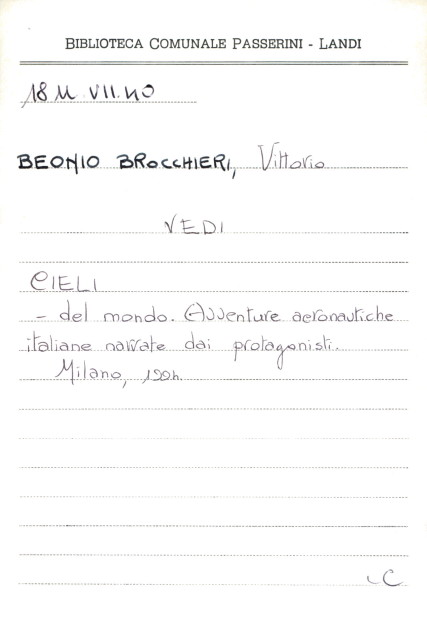 BIBLIOTECA COMUNALE PASSERINI - LANDI
18 M VII.40
BEONIO BROCCHIERI, Vittorio
VEDI
CIELI
- del mondo. Avventure aeronautiche
italiane narrate dai protagonisti.
Milano,